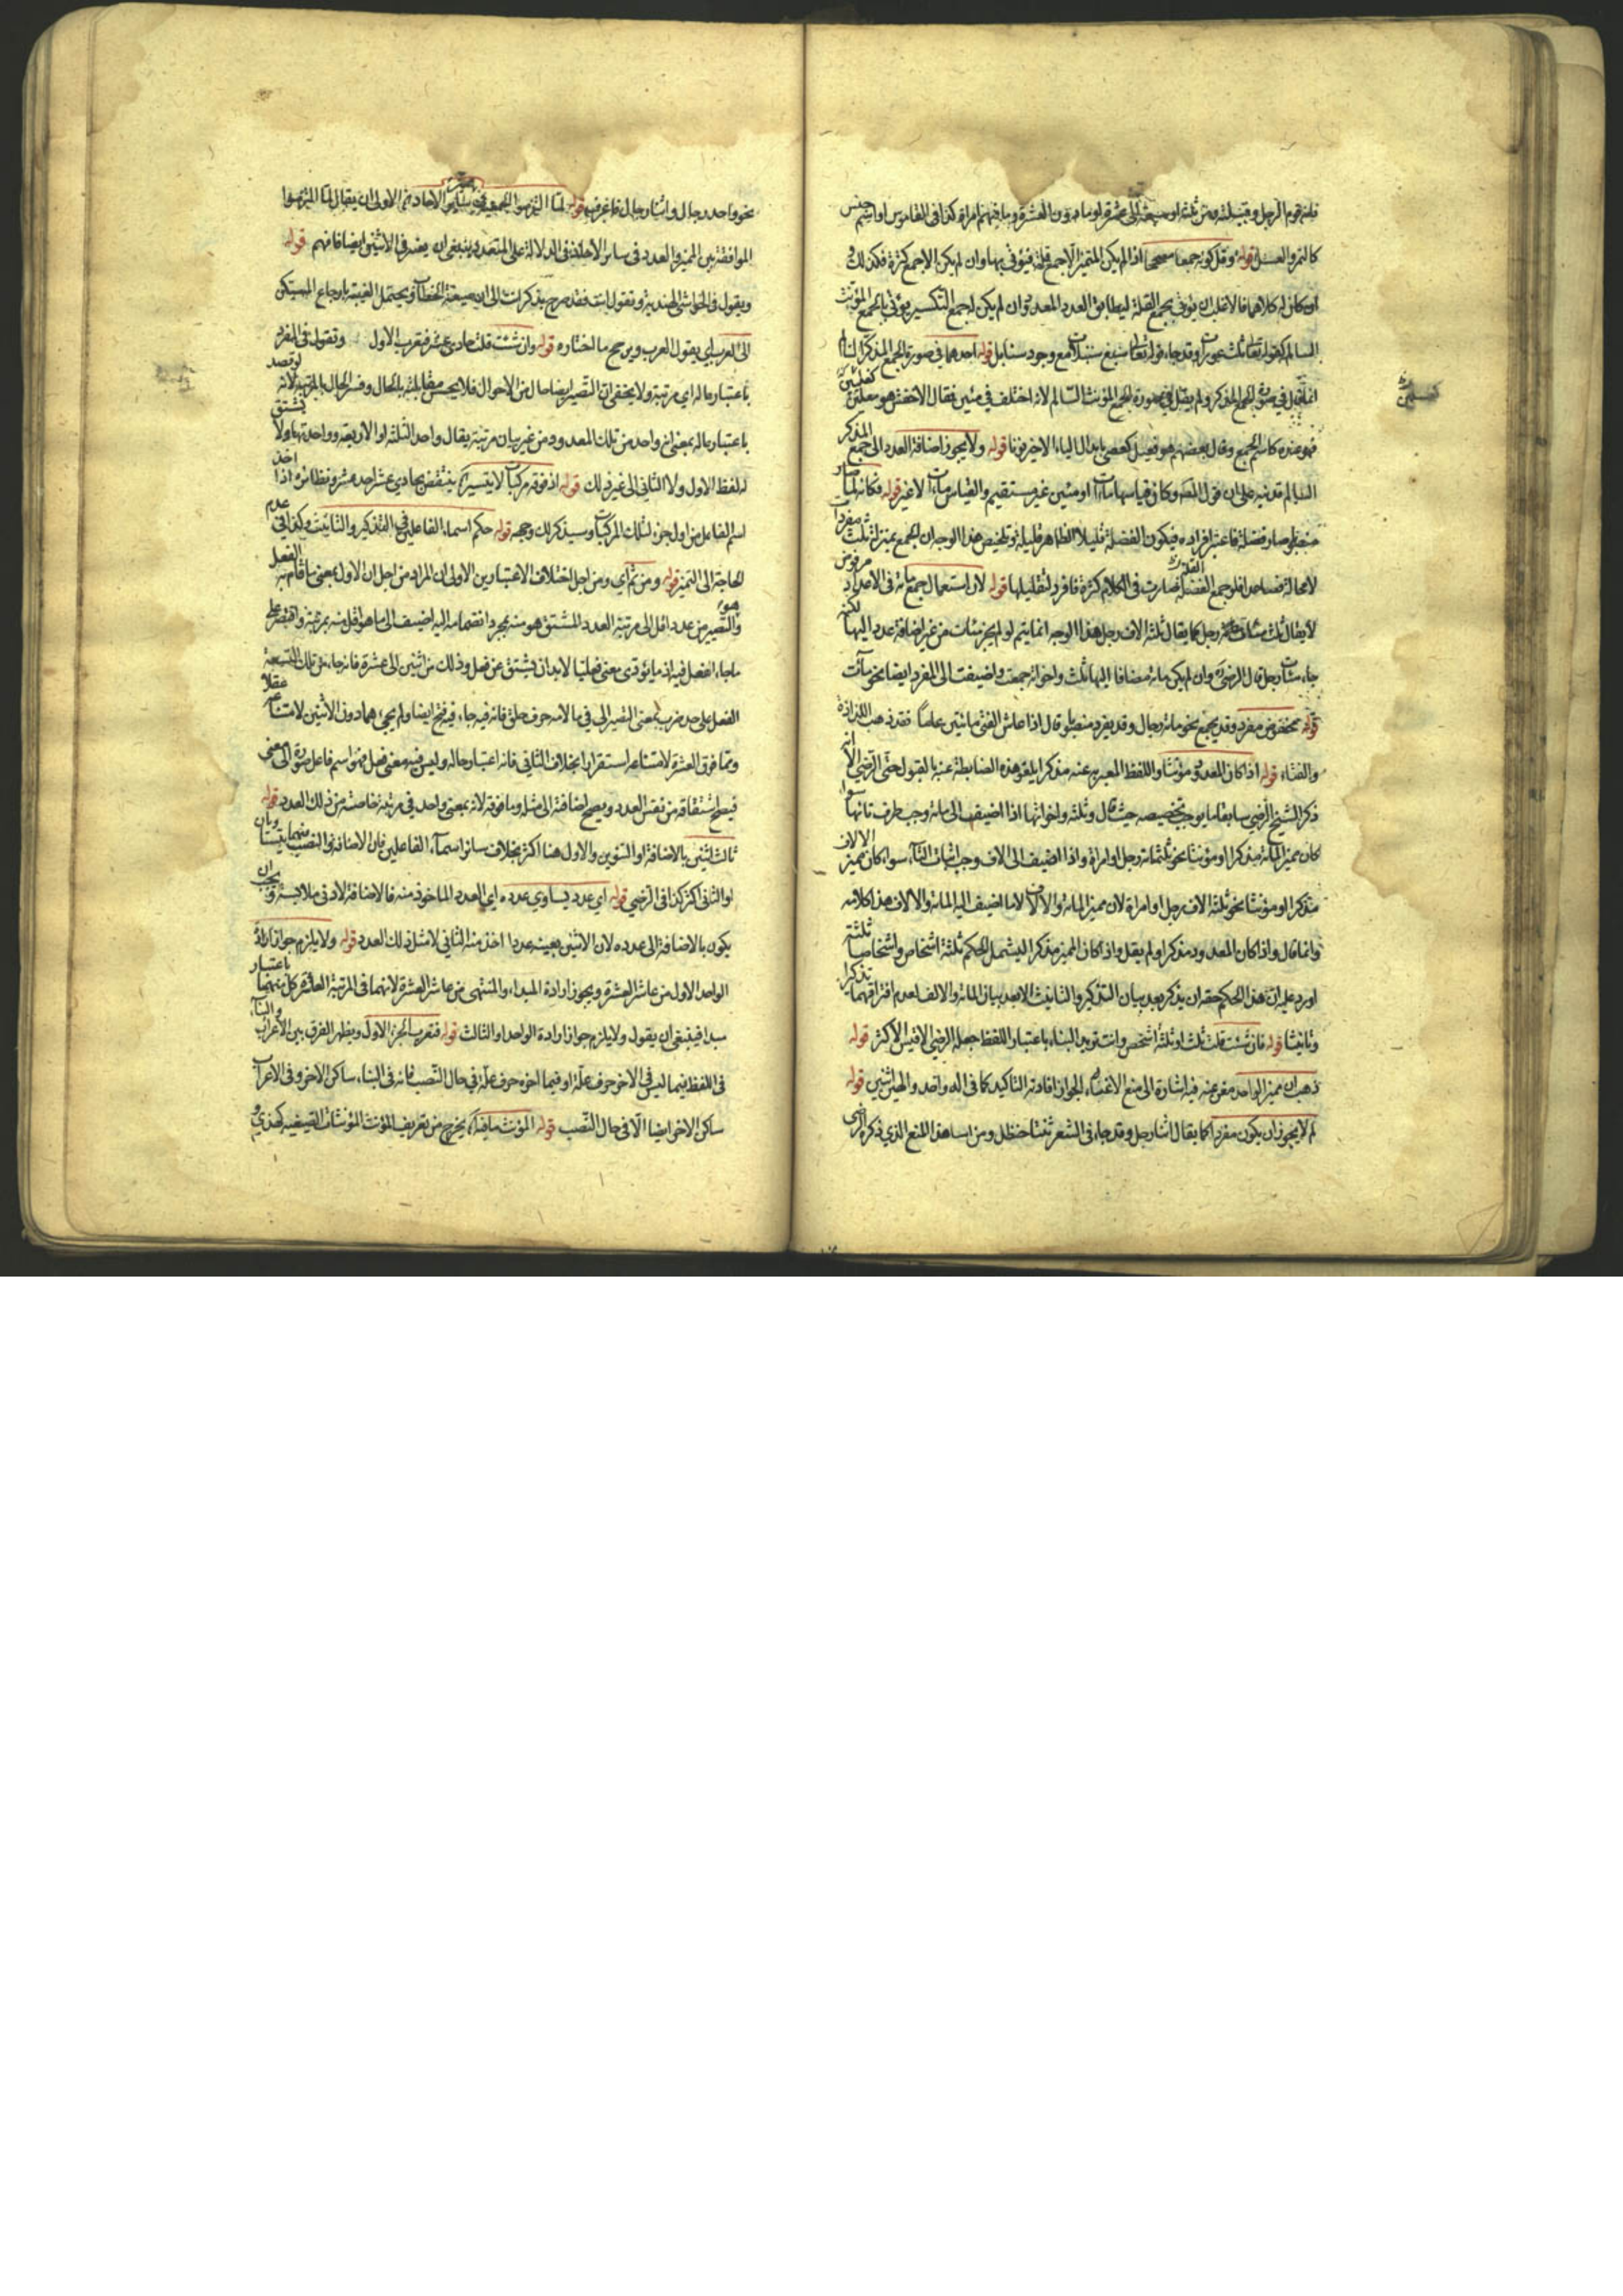 فانه قوم الرجل وقبيلته ومن ثلثة او سبعة الى عشرة او ما دون العشرة وما فيهم امراة كذا فى القاموس او اسم جنس
كالتمر والعسل قوله وقل كونه جمعا مصححا اذا لم يكن للتميز الا جمع قلة فيؤتى بها وان لم يكن الا جمع كثرة فكذلك و
ان كان له كلاهما فالاغلب ان يؤتى بجمع القلة ليطابق العدد المعدود وان لم يكن له جمع التكسير يؤتى بالجمع المؤنث
السالم كقوله تعالى ثلث عورات وقد جاء قوله تعالى سبع سنبلات مع وجود سنابل قوله احدهما فى صورة الجمع المذكر السالم
انما قال فى صورة الجمع المذكر ولم يقل فى صورة الجمع المؤنث السالم لانه اختلف فى مئين فقال الاخفش هو فعلين كغسلين
فهو عنده كاسم الجمع وقال بعضهم هو فعيل كعصى بابدال الياء الاخير نونا قوله ولا يجوز اضافة العدد الى جمع المذكر
السالم وفيه على ان قول المص وكان قياسها مئات او مئين غير مستقيم والقياس مئات لا غير قوله فكانه لما صار
فضلة فاعتبر افراده فيكون الفضلة قليلا الظاهر قليلة وتلخيص هذا الوجه ان الجمع بمنزلة ثلث مفردات
لا محالة فصاعدا فلو جمع الفضلة صارت فى الكلام كثرة فافرد لتقليلها قوله لان استعمال جمع مائة فى الاعداد مرفوض
لا يقال ثلث مئات رجل كما يقال ثلثة الاف رجل هذا الوجه انما يتم لو لم يجز مئات من غير اضافة عدد اليها لكنه
جاء مئات رجل قال الرضى وان لم يكن مائة مضافا اليها ثلث واخواته جمعت واضيفت الى المفرد ايضا نحو مئات
قوله مخفوض مفرد وقد يجمع نحو مائة رجال وقد يفرد منصوبا وقال اذا عاش الفتى مائتين عاما فقد ذهب اللذاذة
والفتاء قوله اذا كان المعدود مؤنثا واللفظ المعبر به عنه مذكرا هذه الضابطة غنية بالقبول حتى الرضى الا انه
ذكر الشيخ الرضى سابقا ما يوجب تخصيصه حيث قال وثلثة واخواتها اذا اضيف الى مائة وجب طرح تائها سواء
كان مميز المائة مذكرا او مؤنثا نحو ثلثمائة رجل او امراة واذا اضيف الى الاف وجب اثبات التاء سواء كان مميز الالاف
مذكرا او مؤنثا نحو ثلثة الاف رجل او امراة لان مميز المائة والالاف لا ما اضيف اليه المائة والالاف هذا كلامه
وانما قال واذا كان المعدود مذكرا ولم يقل واذا كان المميز مذكرا ليشمل الحكم ثلثة اشخاص واشخاصا ثلثة
اورد عليه ان هذا الحكم حقه ان يذكر بعد بيان التذكير والتانيث لا بعد بيان المائة والالف لعدم افتراقهما تذكيرا
وتانيثا قوله فان شئت قلت ثلث او ثلثة اشخص وانت تريد النساء باعتبار اللفظ جعله الرضى الاقيس الاكثر قوله
ذهب ان مميز الواحد مفرغ عنه فيه اشارة الى منع الاغتناء لجواز افادته التاكيد كما فى اله واحد والهين اثنين قوله
لم لا يجوز ان يكون مفردا كما يقال اثنا رجل وقد جاء فى الشعر ثنتا حنظل ومن هذا المنع الذى ذكره الرضى
كغسلين
نحو واحد رجال واثنا رجال فاعرفه قوله لما التزموا الجمعية فى مميز الاحاد ثم الاولى ان يقال لما التزموا
الموافقة بين المميز والعدد فى سائر الاحاد فى الدلالة على المتعدد ينبغى ان يضه فى الاثنين ايضا فافهم قوله
ويقول فى الحواشى الهندية وتقول انت فقد صرح بذكر انت الى ان صيغة الخطاب ويحتمل الغيبة بارجاع المستكن
الى العرب اى يقول العرب ويرجح ما اختاره قوله وان شئت قلت حادى عشر فتعرب الاول وتقول فى المفرد
باعتبار حاله اى مرتبة ولا يخفى ان التصيير ايضا حال من الاحوال فلا يحسن مقابلته بالحال وفسر الحال بالمرتبة لانه لو قصد
باعتبار حاله بمعنى انه واحد من تلك المعدود من غير بيان مرتبة يقال واحد الثلثة او الاربعة وواحدتها ولا يشتق
له لفظ الاول ولا الثانى الى غير ذلك قوله اذ فوقه مركبات لا يتيسر ينتقض بحادى عشر احد عشر ونظائره اذا اخذ
اسم الفاعل من اول جزء لتلك المركبات وسيذكر لك وجهه قوله حكم اسماء الفاعلين فى التذكير والتانيث وكفى فى عدم
الحاجة الى التميز قوله ومن ثم اى ومن اجل اختلاف الاعتبارين الاولى ان المراد من اجل ان الاول بمعنى ما قام به الفعل
والتصيير من عدد اقل الى مرتبة العدد المشتق هو منه بمجرد انضمامه اليه اضيف الى ما هو اقل منه بمرتبة واقتصر على
ما جاء الفعل فيه اذ ما يؤدى معنى فعليا لا بد ان يشتق عن فعل وذلك من اثنين الى عشرة فانه جاء من تلك التسعة
الفعل على حد ضرب بمعنى التصيير الى فيما لامه حرف حلق فانه فيه جاء فيه فتح ايضا ولم يجئ مما دون الاثنين لامتناعه عقلا
ومما فوق العشرة لامتناعه استقرارا بخلاف الثانى فانه اعتبار حاله وليس فيه معنى فعل فهو اسم فاعل صورة لا معنى
فيصح اشتقاقه من نفس العدد ويصح اضافته الى مثل وما فوقه لانه بمعنى واحد فى مرتبة خاصة من ذلك العدد قوله
ثالث اثنين بالاضافة او التنوين والاول هنا اكثر بخلاف سائر اسماء الفاعلين فان الاضافة والنصب فيهما سيان
او الثانى اكثر كذا فى الرضى قوله اى عدد يساوى عدده اى العدد الماخوذ منه فالاضافة لادنى ملابسة ويجب ان
يكون بالاضافة الى عدده لان الاثنين بعينه عددا اخذ منه الثانى لا مثل ذلك العدد قوله ولا يلزم جواز ارادة
الواحد الاول من عاشر العشرة ويجوز ارادة المبدا والمنتهى من عاشر العشرة لانهما فى المرتبة العاشرة كل منهما باعتبار
مبدا فينبغى ان يقول ولا يلزم جواز ارادة الواحد او الثالث قوله فتعرب الجزء الاول ويظهر الفرق بين الاعراب والبناء
فى اللفظ فيما ليس فى الاخر حرف علة او فيما اخره حرف علة فى حال النصب فانه فى البناء ساكن الاخر وفى الاعراب
ساكن الاخر ايضا الا فى حال النصب قوله المؤنث ما فيه يخرج من تعريف المؤنث المؤنثات الصيغية كهذى و